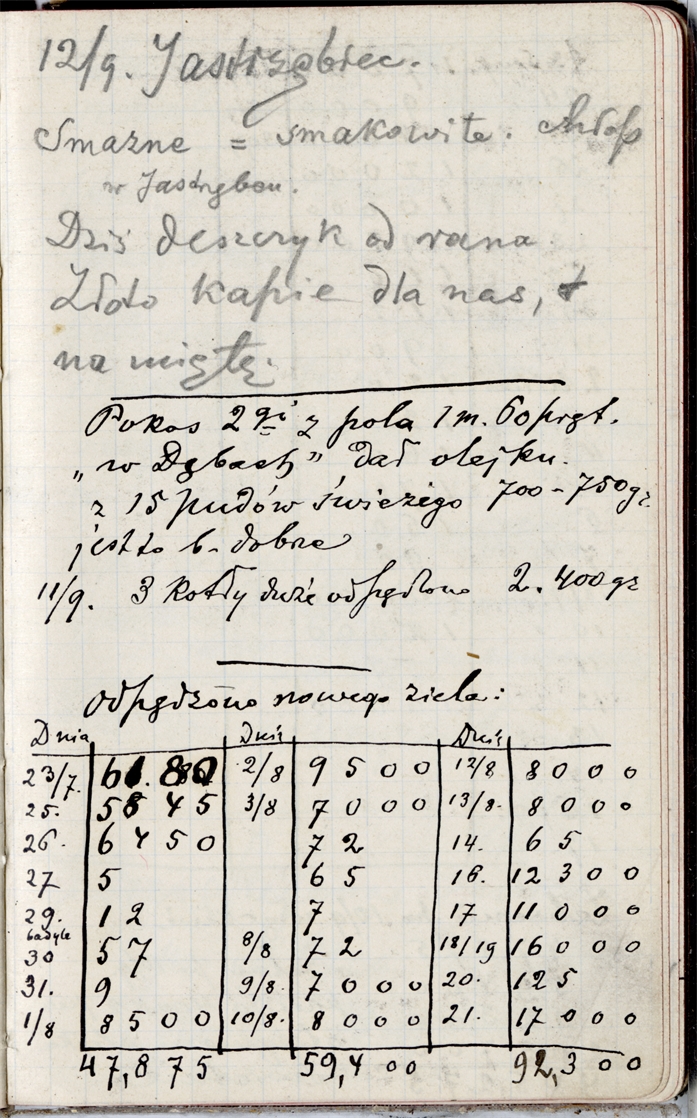 12/9. Jastrzębiec.
Smażne = smakowite.
w Jastrzębcu.
Dziś deszczyk od rana
Złoto kapie dla nas,
na miętę.
Pokos 2gi z pola 1 m. 60 pręt.
„w Dębach” dał olejku
z 15 pudów świeżego 700-750gr
jest to b. dobre
11/9. 3 Kotły duże odpędzono 2.400 gr
Odpędzono nowego ziela:
Dnia Dnia Dnia
23/7. 2/8 9 5 0 0 12/8 8 0 0 0
25. 58 4 5 3/8 7 0 0 0 13/8. 8 0 0 0
26. 6 4 5 0 7 2 14. 6 5
27 5 6 5 16. 12 3 0 0
29. 1 2 7 17 11 0 0 0
badyle
30 5 7 8/8 7 2 18/19 16 0 0 0
31. 9 9/8. 7 0 0 0 20. 12 5
1/8 8 5 0 0 10/8. 8 0 0 0 21. 17 0 0 0
47,8 7 5 59,4 00 92,3 0 0